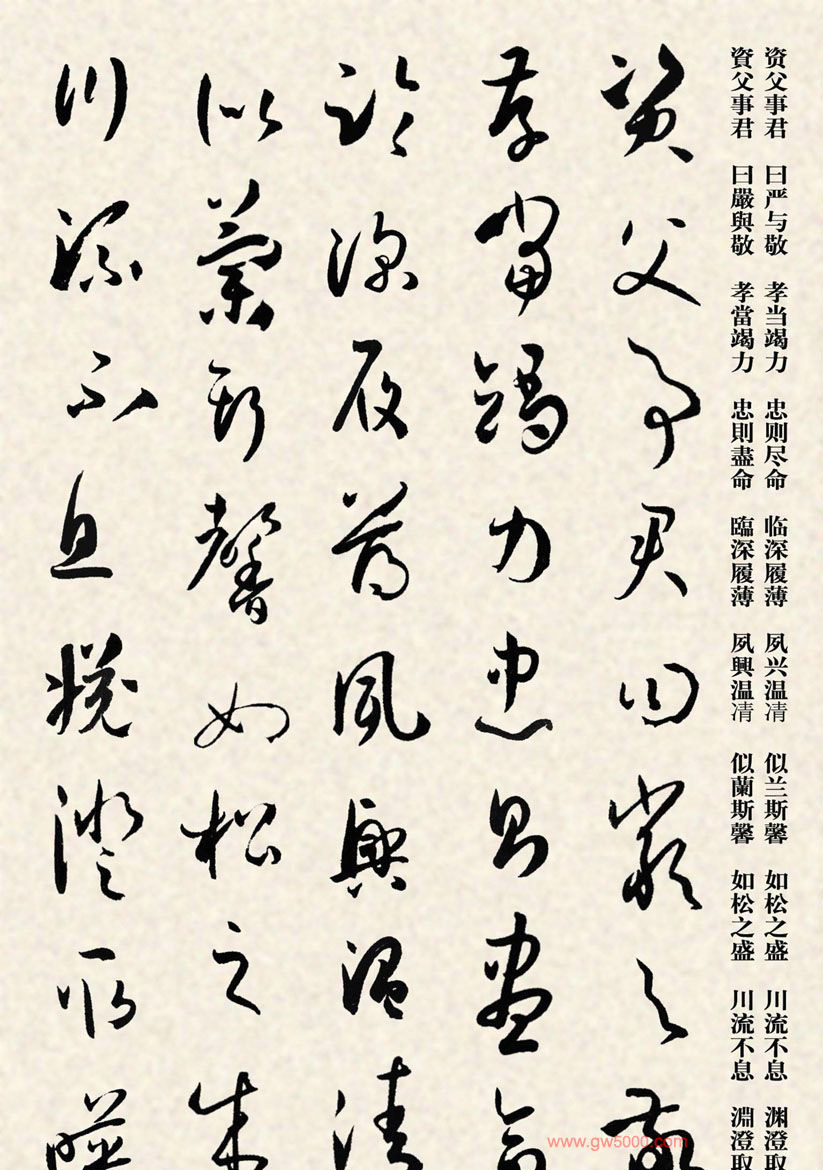 资父事君 曰严与敬 孝当竭力 忠则尽命 临深履薄 夙兴温凊 似兰斯馨 如松之盛 川流不息 渊澄取
資父事君 曰嚴與敬 孝當竭力 忠則盡命 臨深履薄 夙興温凊 似蘭斯馨 如松之盛 川流不息 淵澄取
資父事君曰嚴與敬
孝當竭力忠則盡命
臨深履薄夙興温清
似蘭斯馨如松之盛
川流不息淵澄取暎
www.gw5000.com